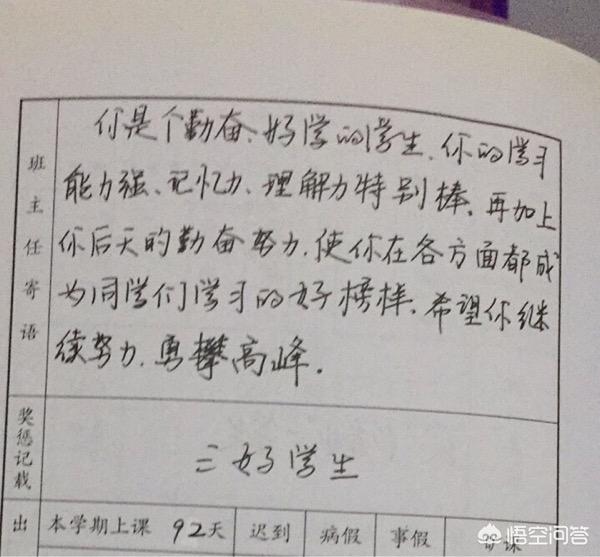 班主任寄语
你是个勤奋、好学的学生、你的学习
能力强、记忆力、理解力特别棒,再加上
你后天的勤奋努力,使你在各方面都成
为同学们学习的好榜样,希望你继
续努力,勇攀高峰.
奖惩记载
三好学生
出 本学期上课 92天 迟到 病假 事假 旷课
悟空问答